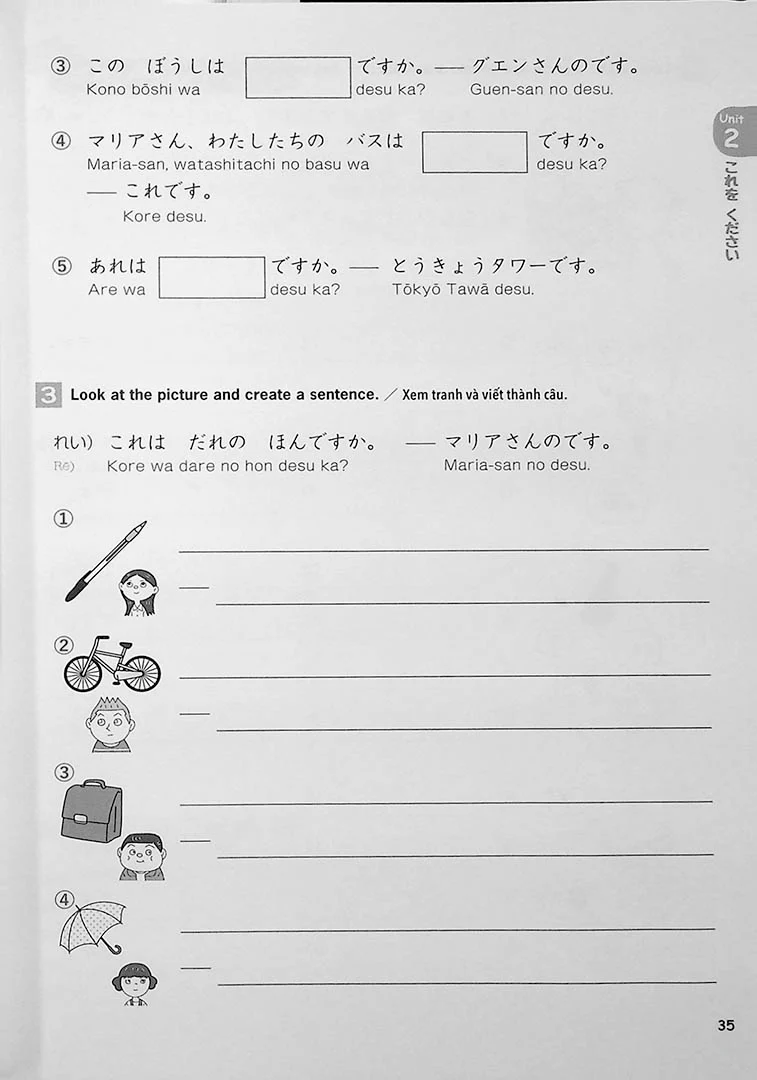 ③ この　ぼうしは　　　　　ですか。── グエンさんのです。
Kono bōshi wa　　　　　desu ka?　Guen-san no desu.
④ マリアさん、わたしたちの　バスは　　　　　ですか。
Maria-san, watashitachi no basu wa　　　　　desu ka?
── これです。
Kore desu.
⑤ あれは　　　　　ですか。── とうきょうタワーです。
Are wa　　　　　desu ka?　Tōkyō Tawā desu.
Unit
2
これを ください
3 Look at the picture and create a sentence. ／ Xem tranh và viết thành câu.
れい) これは　だれの　ほんですか。　── マリアさんのです。
Rē) Kore wa dare no hon desu ka?　Maria-san no desu.
①
②
③
④
35